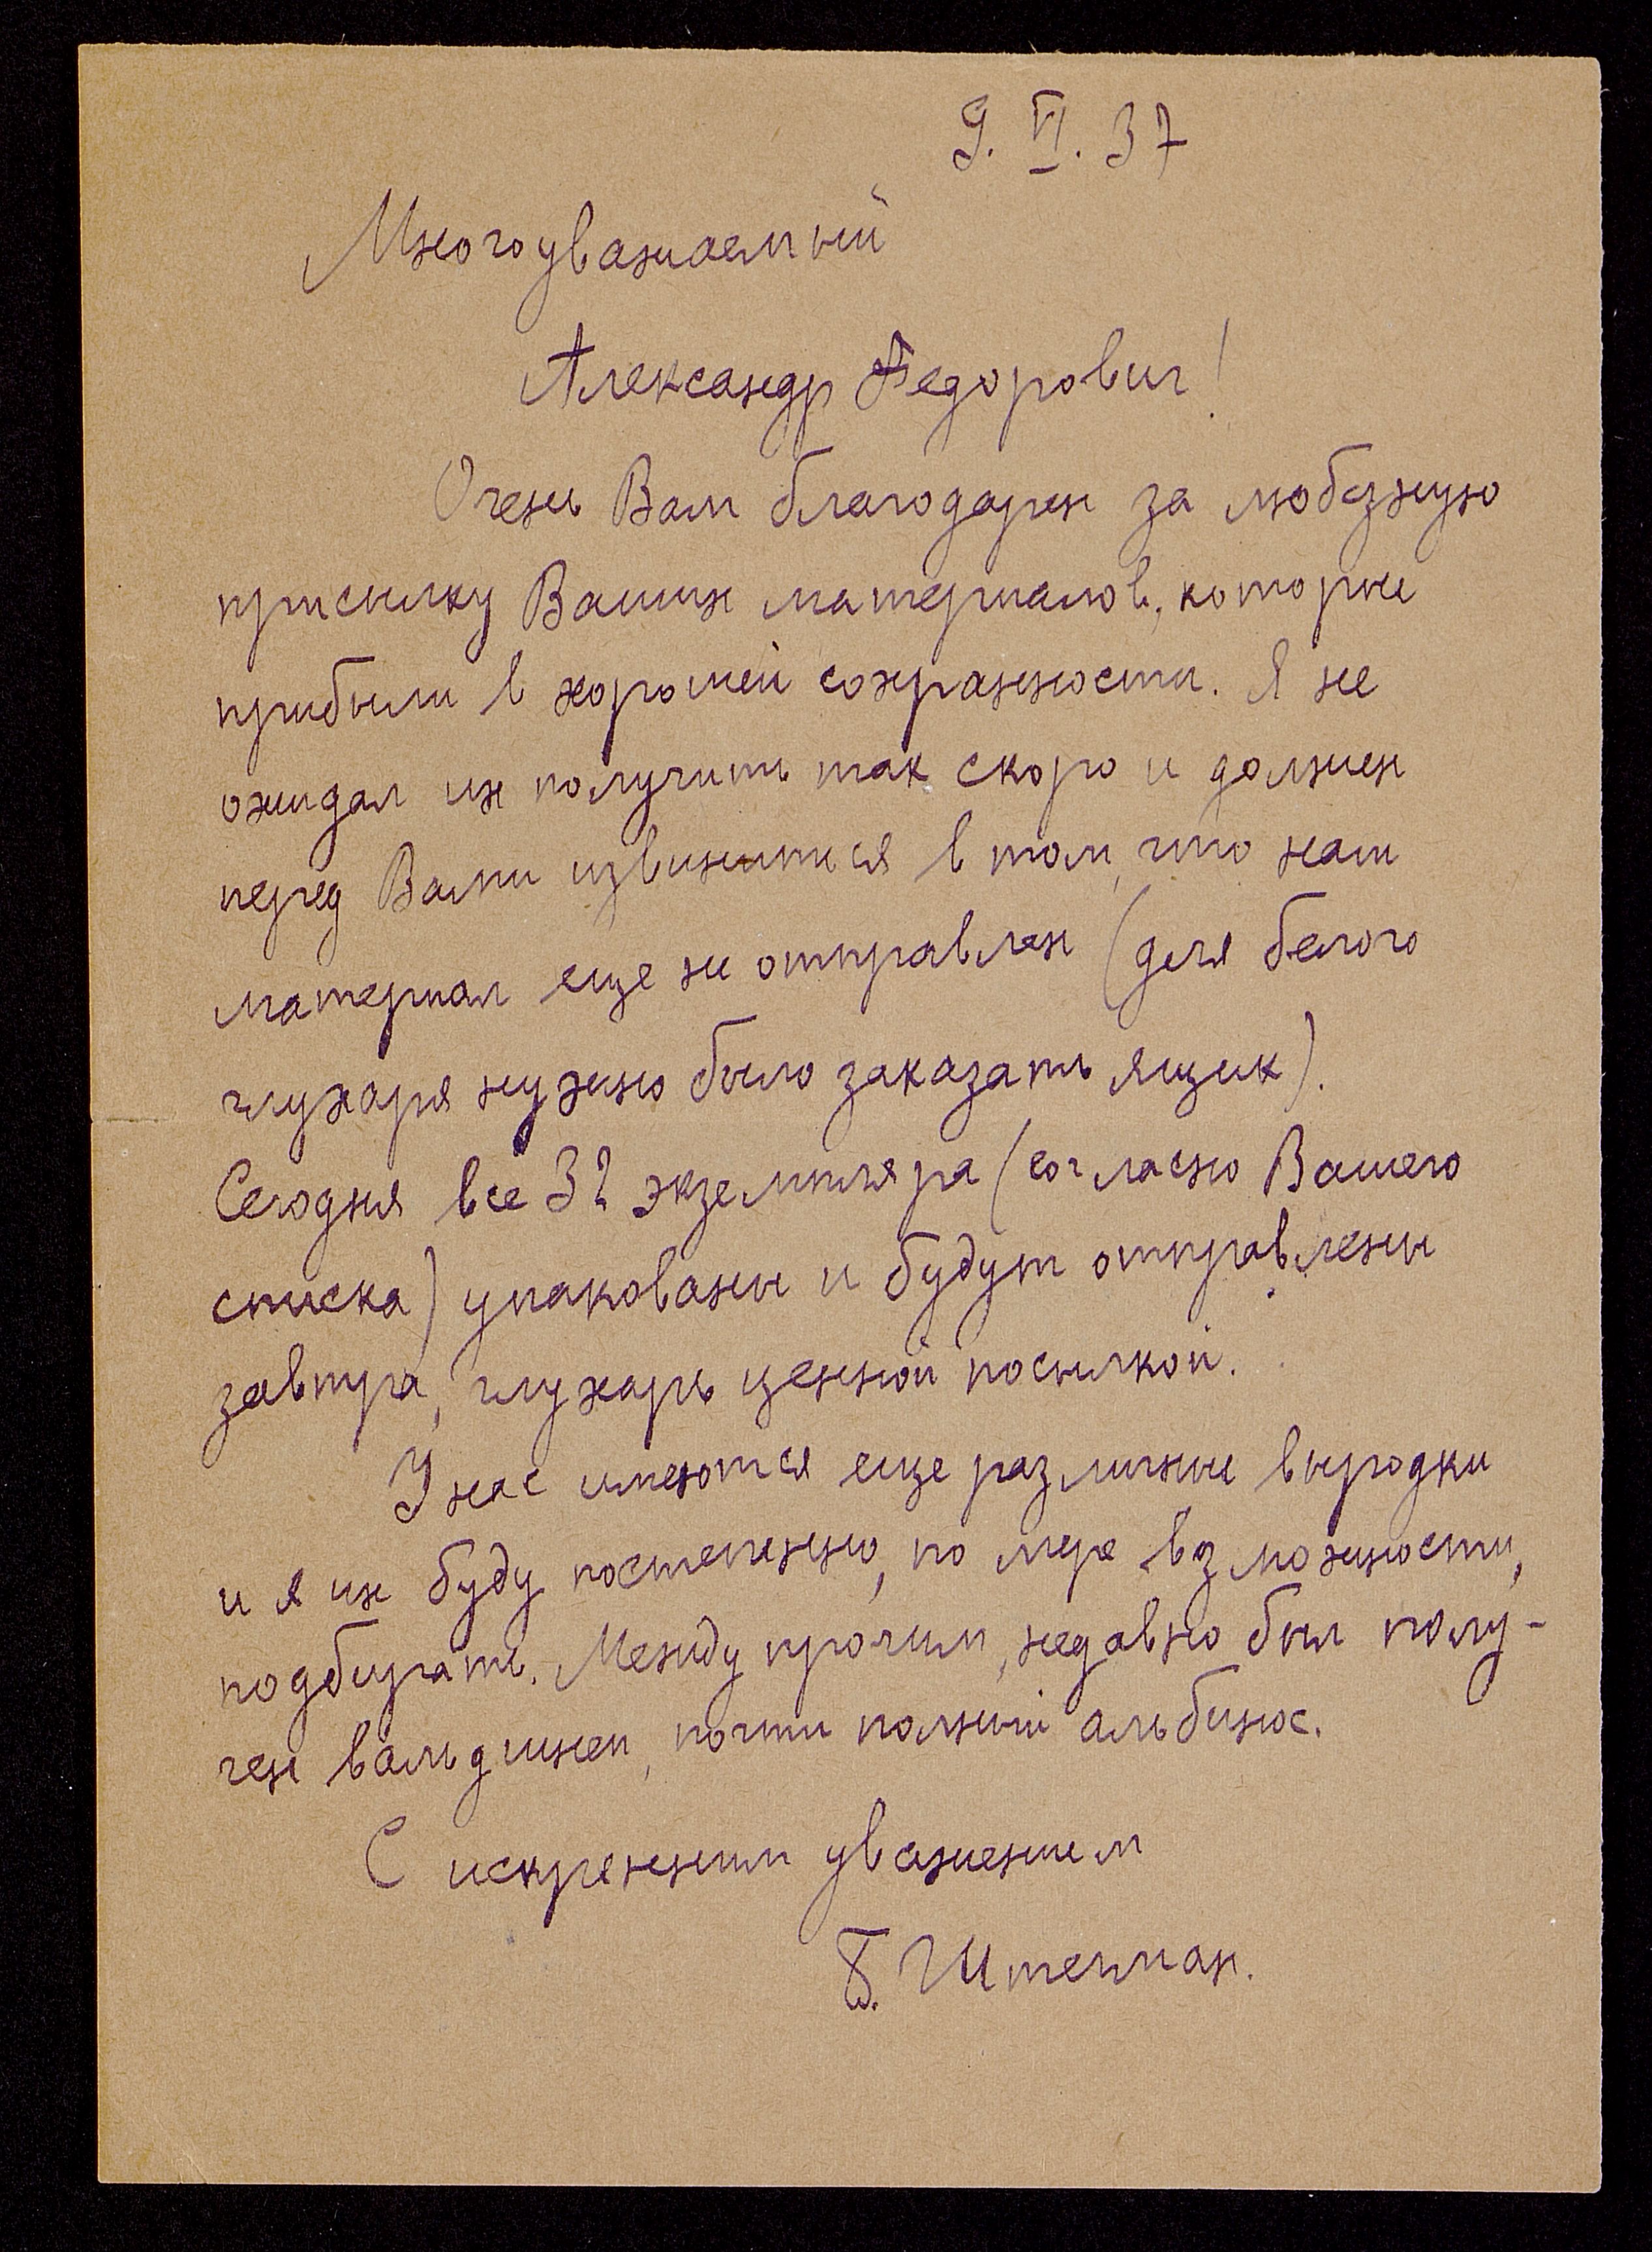 9. VI. 37
Многоуважаемый
Александр Федорович!
Очень Вам благодарен за любезную
присылку Ваших материалов, которые
прибыли в хорошей сохранности. Я не
ожидал их получить так скоро и должен
перед Вами извиниться в том, что наш
материал еще не отправлен (для белого
глухаря нужно было заказать ящик).
Сегодня все 32 экземпляра (согласно Вашего
списка) упакованы и будут отправлены
завтра, глухарь ценной посылкой.
У нас имеются еще различные выродки
и я их буду постепенно, по мере возможности,
подбирать. Между прочим, недавно был полу-
чен вальдшнеп, почти полный альбинос.
С искренним уважением
Б. Штегман.